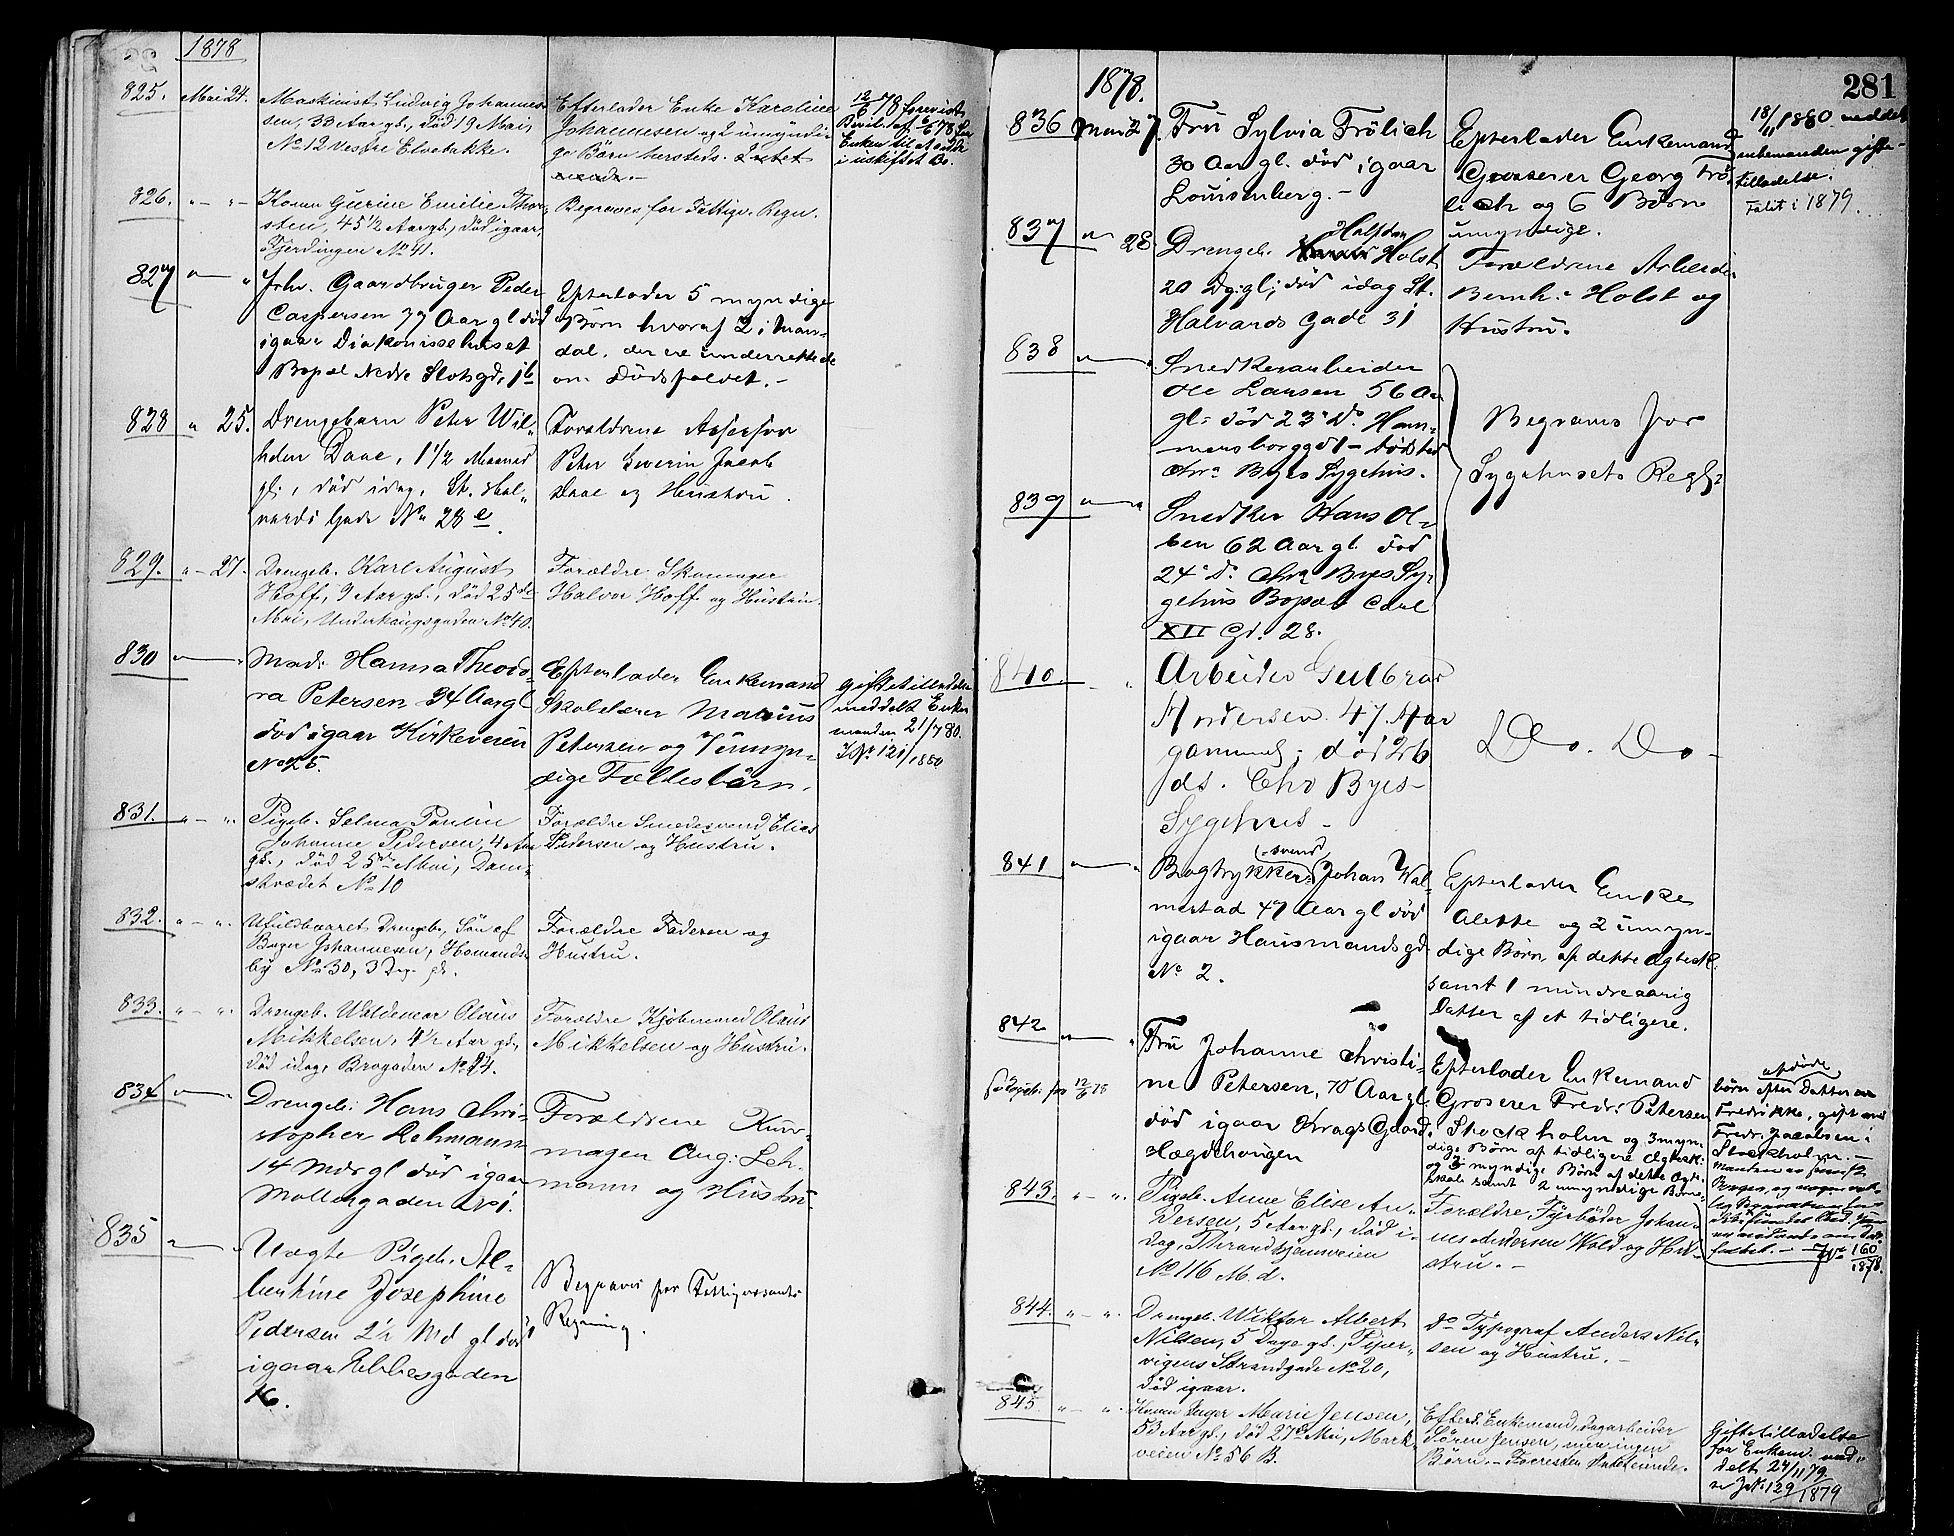 1878
825. Mai 24. Maskinist Ludvig Johannes-
sen, 33 Aar gl., död 19 Mai,
No 12 Vestre Elvebakke.
Efterlader Enke Karoline
Johannesen og 2 umyndi-
ge Börn hersteds. Intet
12/6 78 forevist
Bevil. af 6/6 78 for
Enken til at sidde
i uskiftet Bo.
826. " - " - Konen Gurine Emilie Thor-
sten, 45 1/2 Aar gl., död igaar,
Fjerdingen No 41.
Begraves for Fattigv. Regn.
827 " - " Fhv. Gaardbruger Peder
Caspersen 77 Aar gl død
igaar Diakonissehuset
Bopæl Nedre Slotsgd. 16
Efterlader 5 myndige
Børn hvoraf 2 i Man-
dal, der ere underrettede
om Dødsfaldet. -
828 " 25. Drengebarn Peter Wil-
helm Daae, 1 1/2 Maaned
gl., død idag, St. Hal-
vards Gade No 28 e.
Forældrene Assessor
Peter Severin Jacob
Daae og Hustru.
829. " - 27. Drengeb. Karl August
Hoff, 9 Aar gl., död 25de
Mai, Underhaugsgaden No 40.
Forældre Skomager
Halvor Hoff og Hustru.
830 " - " Mad. Hanna Theodo-
ra Petersen 34 Aar gl
død igaar Kirkeveien
No 25.
Efterlader Enkemand
Skolelærer Marius
Petersen og 7 umyn-
dige Fællesbørn.
Giftetilladelse
meddelt Enke-
manden 21/7 80.
J.No 121/1880
831. " - ". Pigeb. Selma Pauline
Johanne Pedersen, 4 Aar
gl., död 25de Mai, Dam-
strædet No 10
Forældre Smedesvend Elias
Pedersen og Hustru.
832. " - ". Ufuldbaaret Drengeb., Sön af
Bager Johannesen, Homands-
by No 30, 3 Dage gl.
Forældre Faderen og
Hustru.
833. " - ". Drengeb. Waldemar Olaus
Mikkelsen, 4 1/2 Aar gl.,
död idag, Brogaden No 14.
Forældre Kjöbmand Olaus
Mikkelsen og Hustru.
834 " - Drengeb. Hans Chri-
stopher Lehmann
14 Mdr gl død igaar
Møllergaden No 1.
Forældrene Kurv-
magen Aug: Leh-
mann og Hustru
835 " - Uægte Pigeb. Al-
bertine Josephine
Pedersen 2 1/2 Md gl død
igaar Lebbesgaden
16.
Begraves for Fattigvæsenets
Regning.
281
1878.
836 Mai 27. Fru Sylvia Frölich
30 Aar gl. død igaar
Louisenberg. -
Efterlader Enkemand
Grosserer Georg Frö-
lich og 6 Børn
umyndige.
18/11 1880. meddelt
Enkemanden gifte-
tilladelse.
Falit i 1879.
837 " 28 Drengeb. Halfdan Holst
20 Dg. gl; død idag St.
Halvards Gade 31
Forældrene Arbeider
Bernh. Holst og
Hustru.
838 " - " Snedkerarbeider
Ole Larsen 56 Aar
gl. død 23' D. Ham-
mersborggd 1 - dødsted
Chra Byes Sygehus.
Begraves for
Sygehusets Regg:
839 " - " Snedker Hans Ol-
sen 62 Aar gl. død
24' D. Chra Byes Sy-
gehus Bopæl Carl
XII Gd. 28.
840. - " Arbeider Gulbrand
Andersen 47 Aar
gammel; död 26
ds. Chr Byes
Sygehus -
Do. Do -
841 " - " Bogtrykker-svend Johan Wal-
mestad 47 Aar gl død
igaar Hausmandsgd.
No 2.
Efterlader Enke
Alette og 2 umyn-
dige Børn af dette Ægtesk.
samt 1 mindreaarig
Datter af et tidligere.
842 " - " Fru Johanne Christi-
ne Petersen, 70 Aar gl,
død igaar Krags Gaard,
Hægdehaugen
Efterlader Enkemand
Groserer Fredr. Petersen
Stockholm og 3 myn-
dige Børn af tidligere Ægtesk:
og 3 myndige Børn af dette Ægte-
skab samt 2 umyndige Børne-
børn efter afdøde Datter
Fredrikke, gift med
Fredr. Jacobsen i
Stockholm. -
No 160/1878.
843. " - ". Pigeb. Anne Elise An-
dersen, 5 Aar gl., död i-
dag, Thrandhjemsveien
No 116 M. d.
Forældre Fyrböder Johan-
nes Andersen Wold og Hu-
stru. -
844. " - ". Drengeb. Wiktor Albert
Nilsen, 5 Dage gl., Piper-
vigens Strandgade No 20,
död igaar.
do Typograf Anders Nil-
sen og Hustru. -
845. " - ". Konen Inger Marie Jensen,
53 Aar gl., död 27de Mai, Mark-
veien No 56 B.
Efterl. Enkemand, Dagarbeider
Sören Jensen, men ingen
Börn. -
Giftetilladelse
for Enkem. med-
delt 24/11 79.
J.No 129/1879